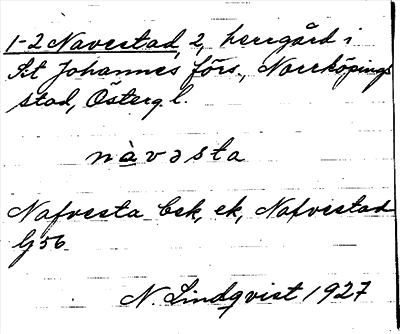 1-2 Navestad, 2, herrgård i
S:t Johannes förs., Norrköpings
stad, Österg. l.
nàvəsta
Nafvesta bsk, ek, Nafvestad
G56
N. Lindqvist 1927